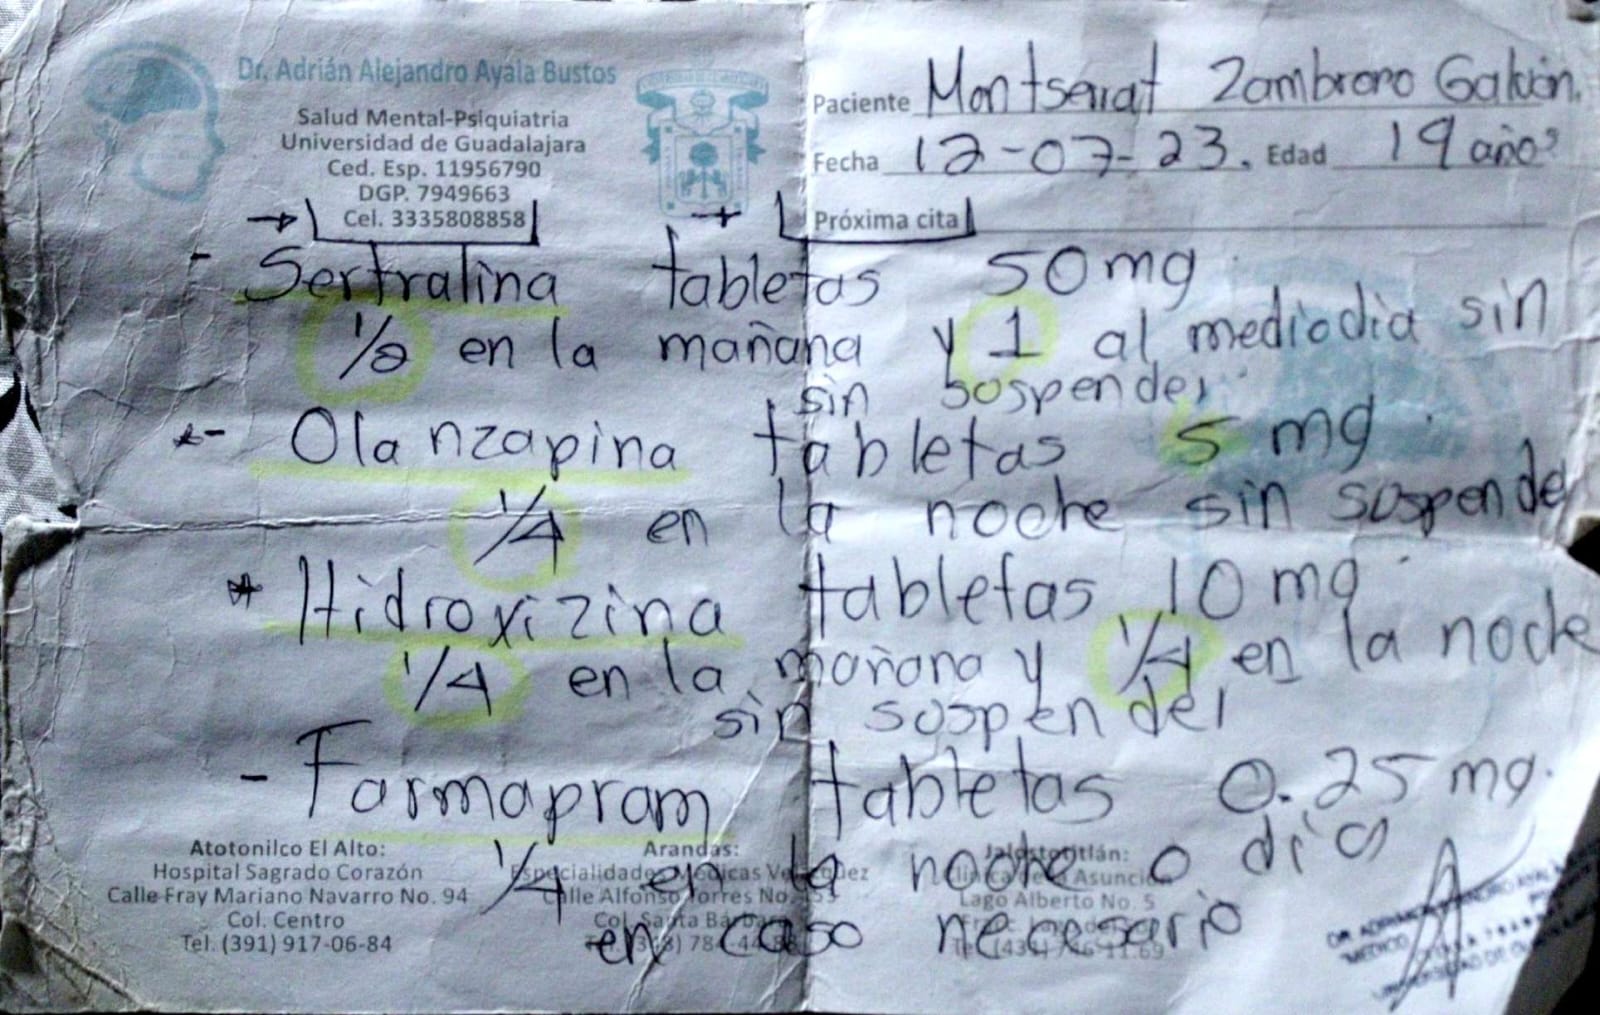 Dr. Adrián Alejandro Ayala Bustos
Salud Mental-Psiquiatria
Universidad de Guadalajara
Ced. Esp. 11956790
DGP. 7949663
Cel. 3335808858
Paciente Montserrat Zambrano Galván.
Fecha 12-07-23. Edad 19 años
Próxima cita
- Sertralina tabletas 50mg
1/2 en la mañana y 1 al mediodia sin
sin suspender
- Olanzapina tabletas 5 mg
1/4 en la noche sin suspender
* Hidroxizina tabletas 10 mg
1/4 en la mañana y 1/4 en la noche
sin suspender
- Farmapram tabletas 0.25 mg.
1/4 en la noche o día
en caso necesario
Atotonilco El Alto:
Hospital Sagrado Corazón
Calle Fray Mariano Navarro No. 94
Col. Centro
Tel. (391) 917-06-84
Arandas:
Especialidades Médicas
Calle Alfonso Torres No.
Col. Santa Bárbara
Jalostotitlán:
Clínica de la Asunción
Lago Alberto No. 5